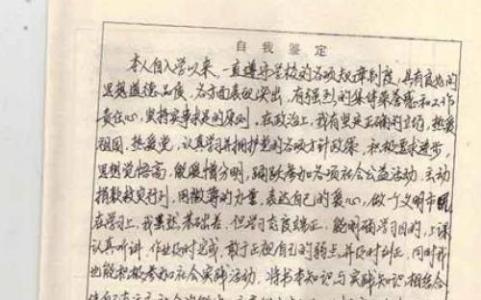 自我鉴定
本人自入学以来,一直遵守学校的各项规章制度,具有良好的
思想道德品质,各方面表现突出,有强烈的集体荣誉感和工作
责任心,坚持实事求是的原则,在政治上,我有坚定正确的立场,热爱
祖国,热爱党,认真学习并拥护党的各项方针政策,积极要求进步,
思想觉悟高,能爱憎分明,踊跃参加各项社会公益活动,主动
捐款救灾行列,用微薄的力量,表达自己的爱心,做一个文明市民
在学习上,我虽然基础差,但学习态度端正,能明确学习目的,上课
认真听讲,作业及时完成,敢于正视自己的弱点,并及时纠正,同时我
也能积极参加社会实践活动,将书本知识与实践知识相结合,